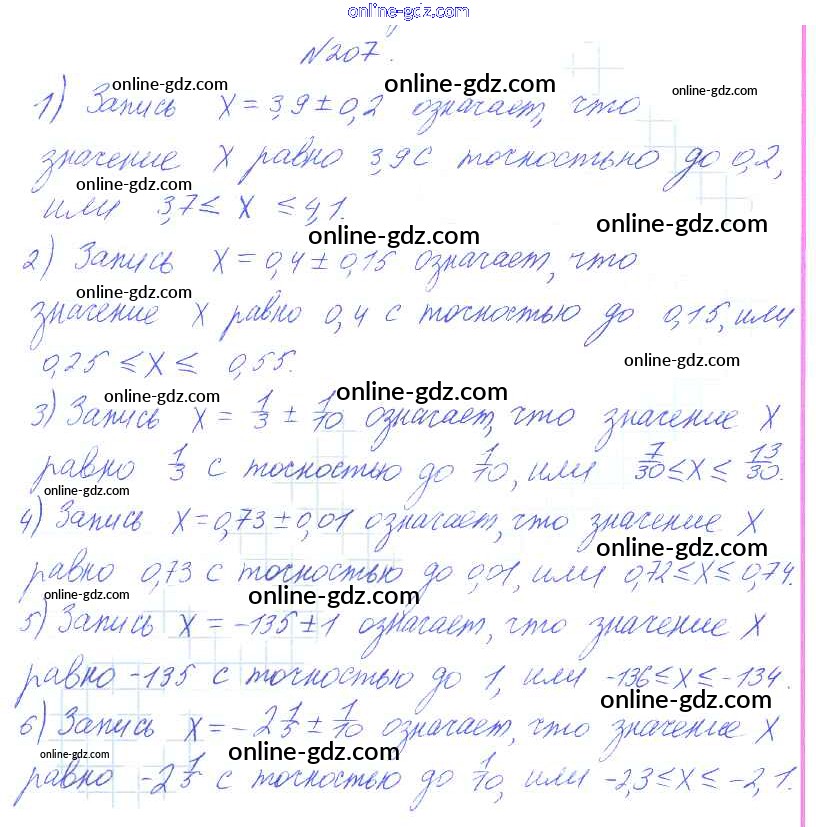 online-gdz.com
№207.
online-gdz.com online-gdz.com online-gdz.com
1) Запись x = 3,9 ± 0,2 означает, что
online-gdz.com
значение x равно 3,9 с точностью до 0,2,
online-gdz.com
или 3,7 ≤ x ≤ 4,1.
online-gdz.com
online-gdz.com
2) Запись x = 0,4 ± 0,15 означает, что
online-gdz.com
значение x равно 0,4 с точностью до 0,15, или
0,25 ≤ x ≤ 0,55.
online-gdz.com
online-gdz.com online-gdz.com
3) Запись x = 1/3 ± 1/10 означает, что значение x
равно 1/3 с точностью до 1/10, или 7/30 ≤ x ≤ 13/30.
online-gdz.com
4) Запись x = 0,73 ± 0,01 означает, что значение x
online-gdz.com
равно 0,73 с точностью до 0,01, или 0,72 ≤ x ≤ 0,74.
online-gdz.com online-gdz.com
5) Запись x = -135 ± 1 означает, что значение x
равно -135 с точностью до 1, или -136 ≤ x ≤ -134.
online-gdz.com
6) Запись x = -2 1/5 ± 1/10 означает, что значение x
online-gdz.com online-gdz.com
равно -2 1/5 с точностью до 1/10, или -2,3 ≤ x ≤ -2,1.